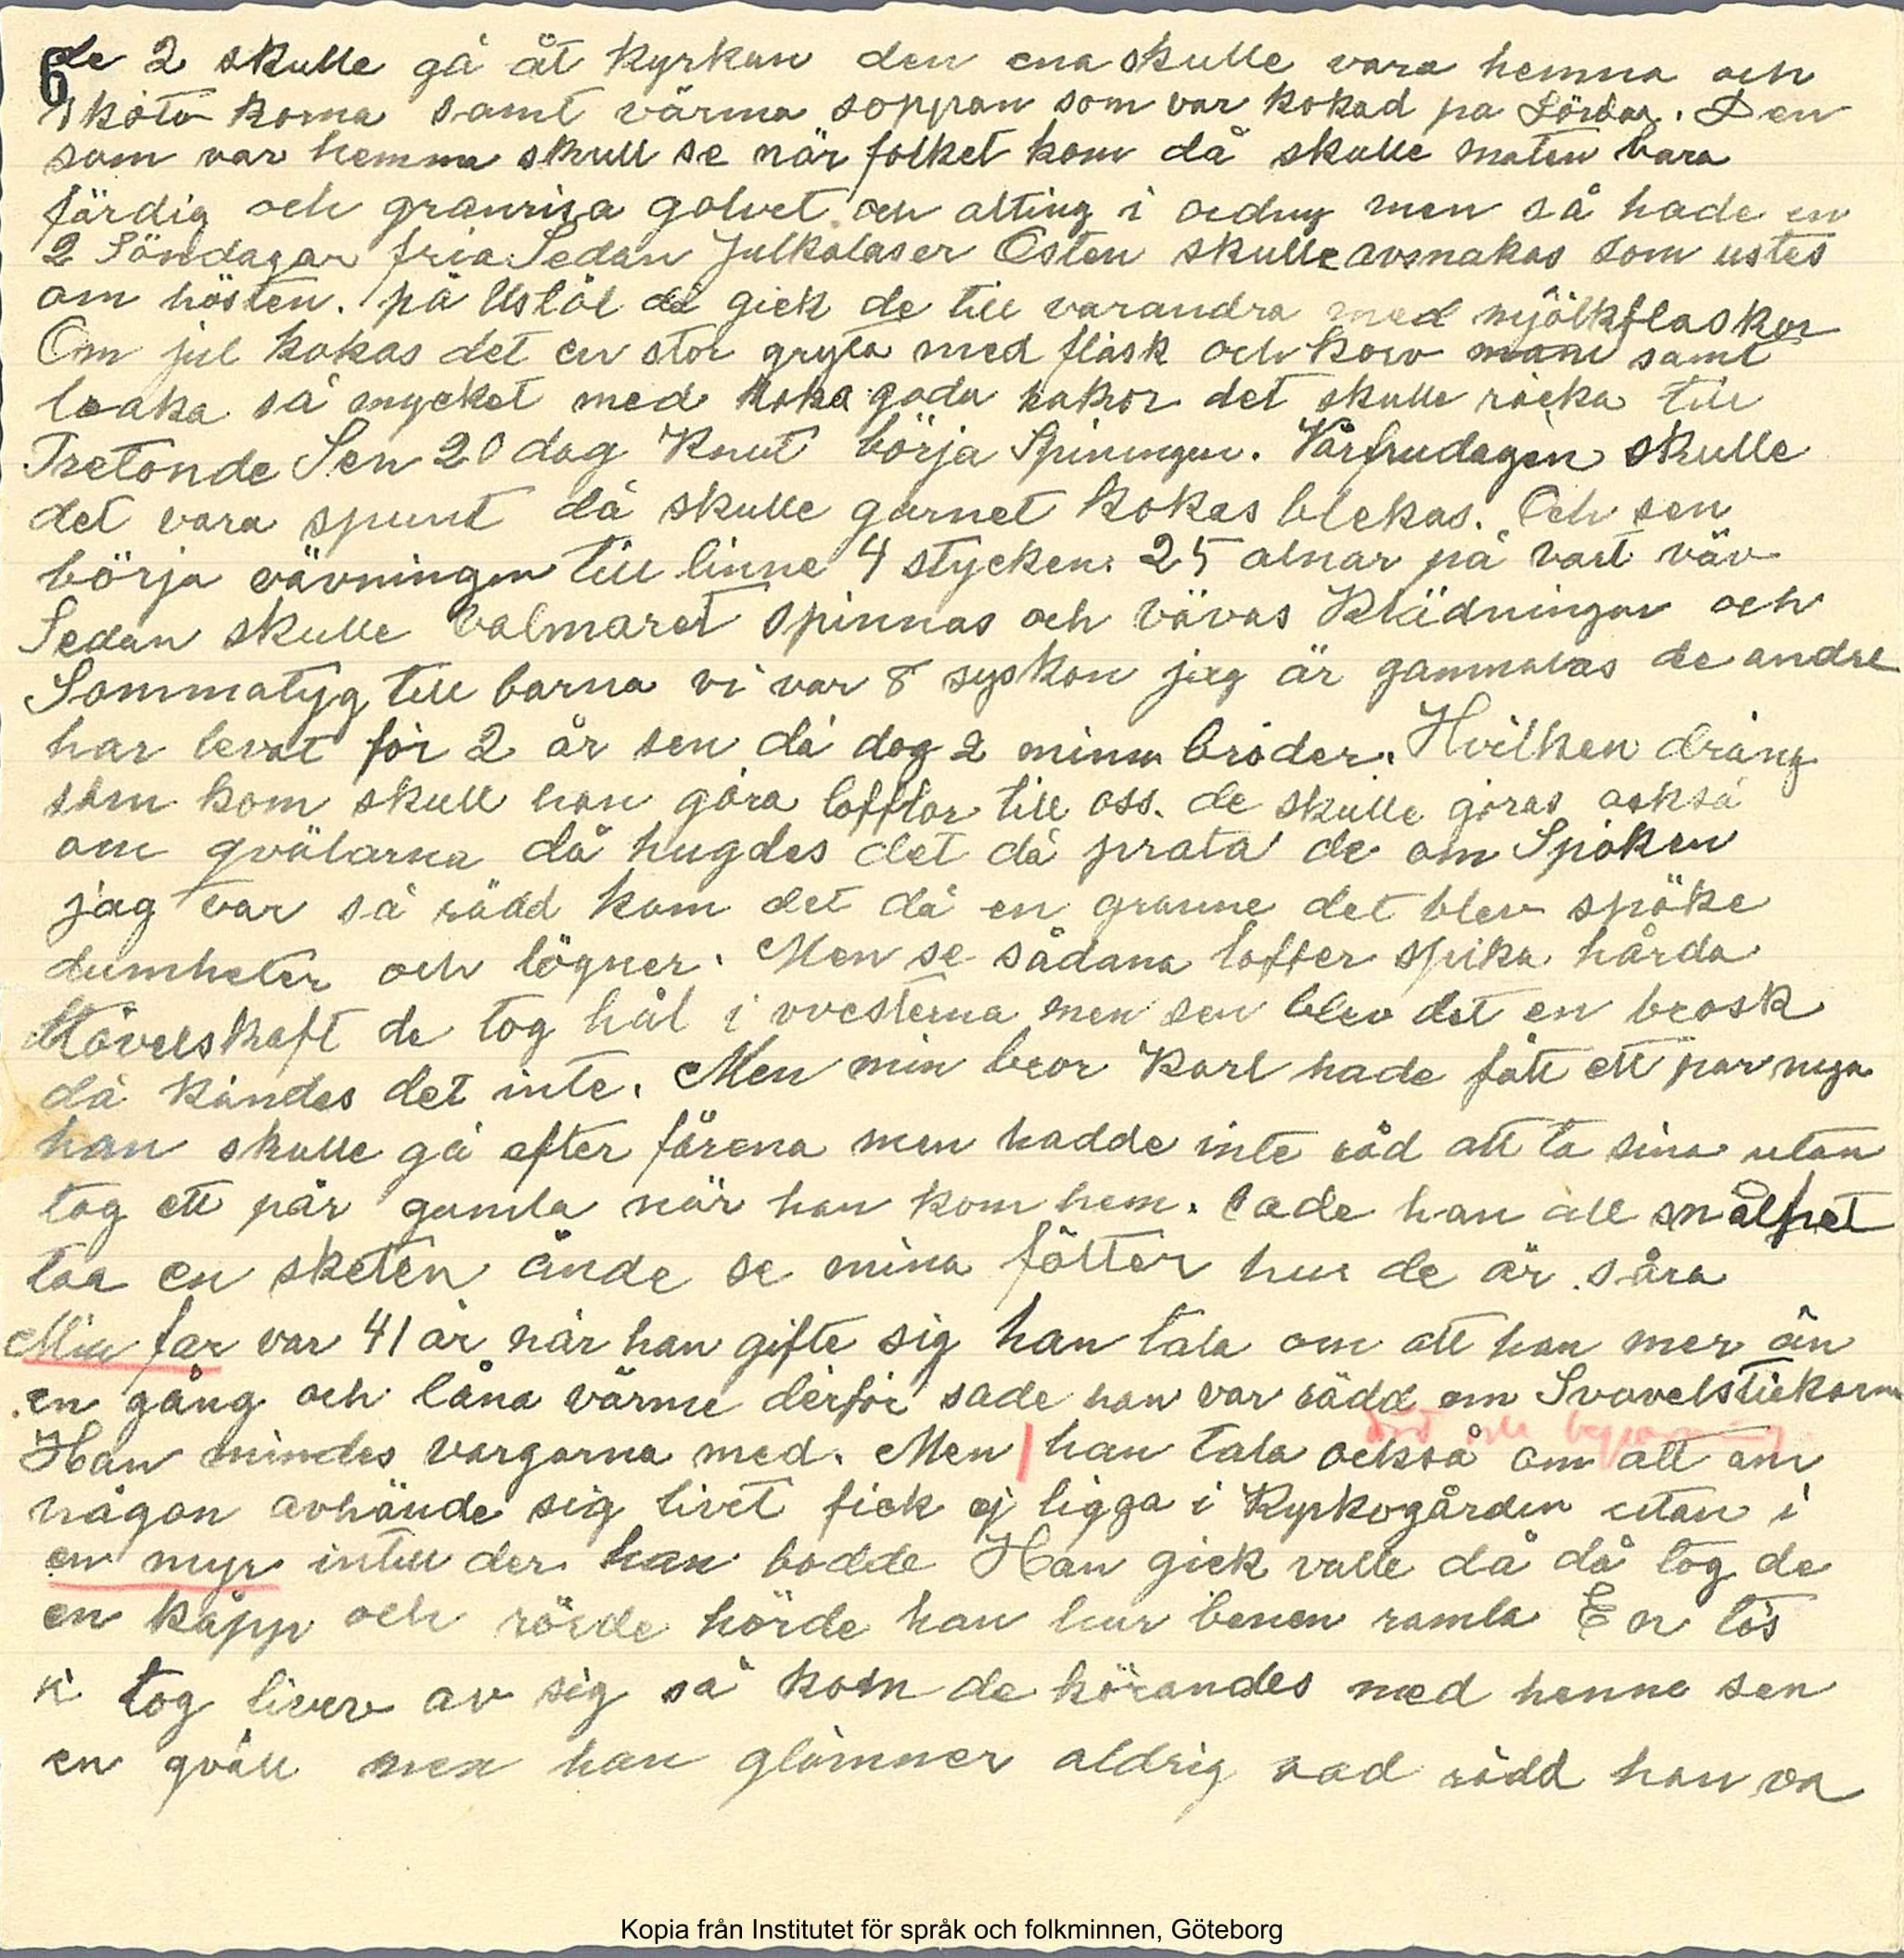 6
de 2 skulle gå åt kyrkan den ena skulle vara hemna och
sköta korna samt värma soppan som var kokad på Lördag. Den
som var hemma skull se när folket kom då skulle maten vara
färdig och granrisa golvet och alting i ordng men så hade en
2 Söndagar fria Sedan Julkalaser Osten skulle avsmakas som ustes
om hösten. på Ustöl då gick de till varandra med mjölkflaskor
Om jul kokas det en stor gryta med fläsk och korv samt
baka så mycket med goda kakor det skulle räcka till
Tretonde Sen 20 dag Knut börja Spiningen. Vårfrudagen skulle
det vara spunt då skulle garnet kokas blekas. Och sen
börja vävningen till linne 4 stycken 25 alnar på vart väv
Sedan skulle valmaret spinnas och vävas Klädningar och
Sommatyg till barna vi var 8 syskon jag är gammalas de andre
har levat för 2 år sen då dog 2 minna bröder. Hvilken dräng
som kom skull han göra tofflor till oss. de skulle göras också
om qvälarna då hugdes det då prata de om Spöken
jag var så rädd kom det då en granne det blev spöke
dumheter och lögner. Men se sådana tofler spika hårda
Stövelskaft de tog hål i vvesterna men sen blev det en brosk
då kändes det inte. Men min bror Karl hade fått ett par nya
han skulle gå efter fårena men hadde inte råd att ta sina utan
tog ett pår gamla när han kom hem. sade han all snålhet
taa en sketen ände se mina fötter hur de är såra
Min far var 41 år när han gifte sig han tala om att han mer än
en gång och låna värme derför sade han var rädd om Svavelstickorna
Han mindes vargarna med. Men han tala också om att om
någon avhände sig livet fick ej ligga i Kyrkogården utan i
en myr intill der han bodde Han gick valle då då tog de
en käpp och rörde hörde han hur benen ramla En tös
tog livev av sig så kom de körandes med henne sen
en qväll men han glömner aldrig vad rädd han va
Kopia från Institutet för språk och folkminnen, Göteborg